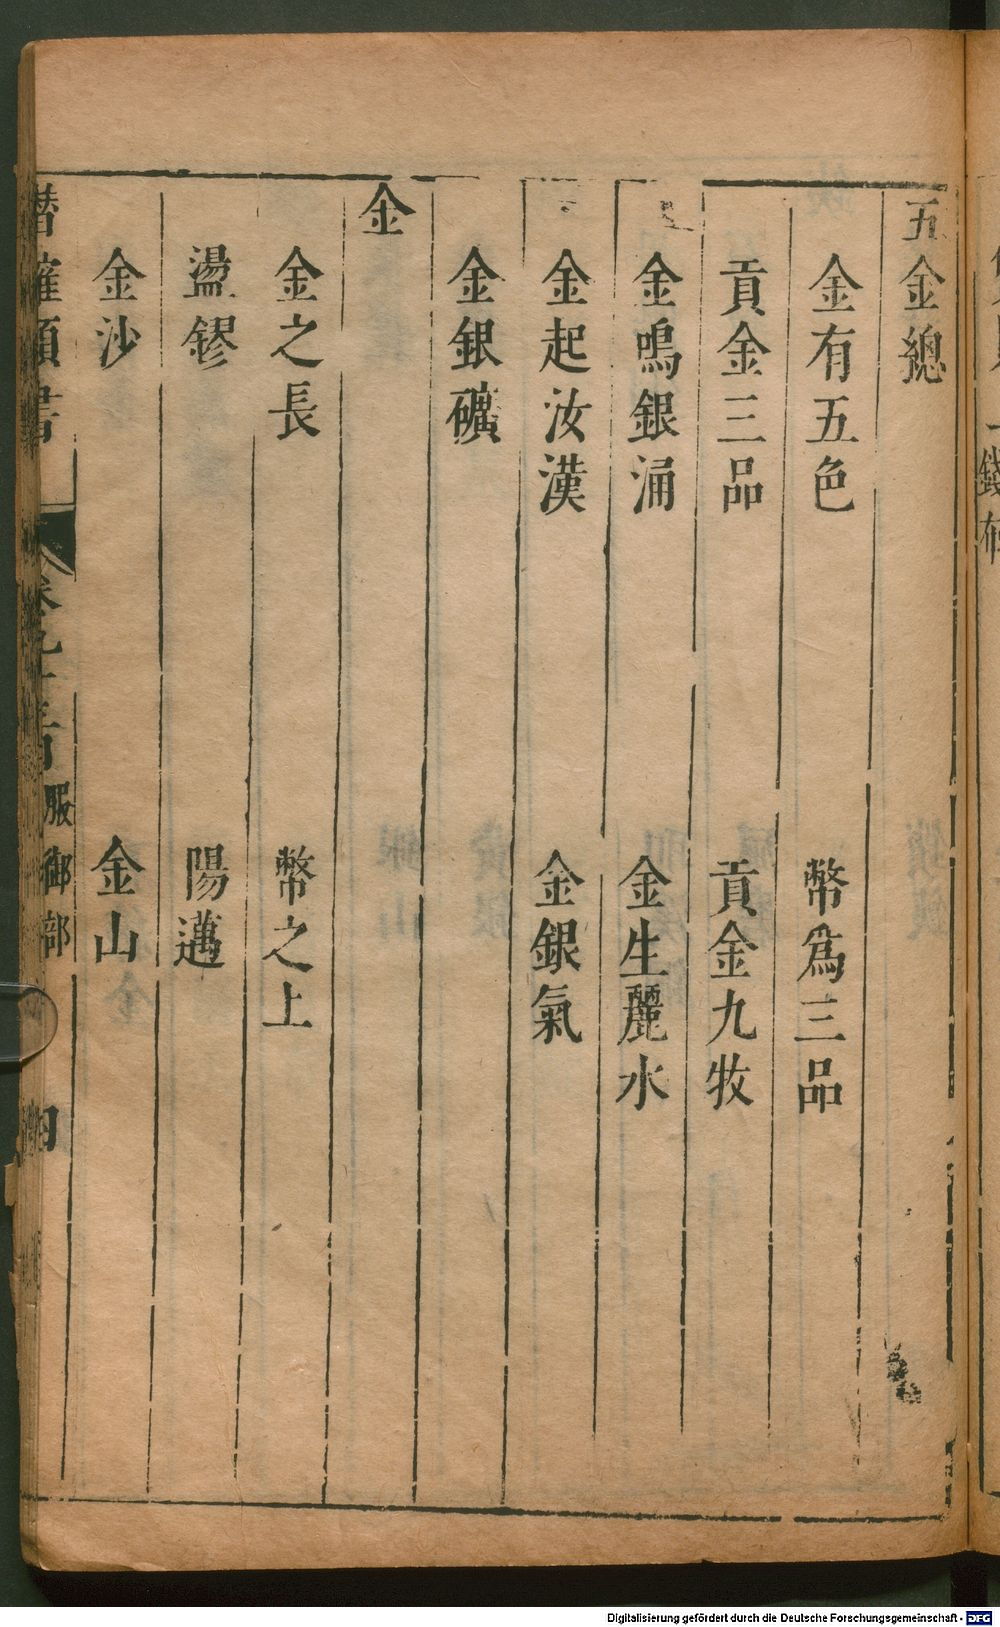 五金總
金有五色 幣爲三品
貢金三品 貢金九牧
金鳴銀涌 金生麗水
金起汝漢 金銀氣
金銀礦
金
金之長 幣之上
盪鏐 陽邁
金沙 金山
潛確類書 服御部
Digitalisierung gefördert durch die Deutsche Forschungsgemeinschaft - DFG